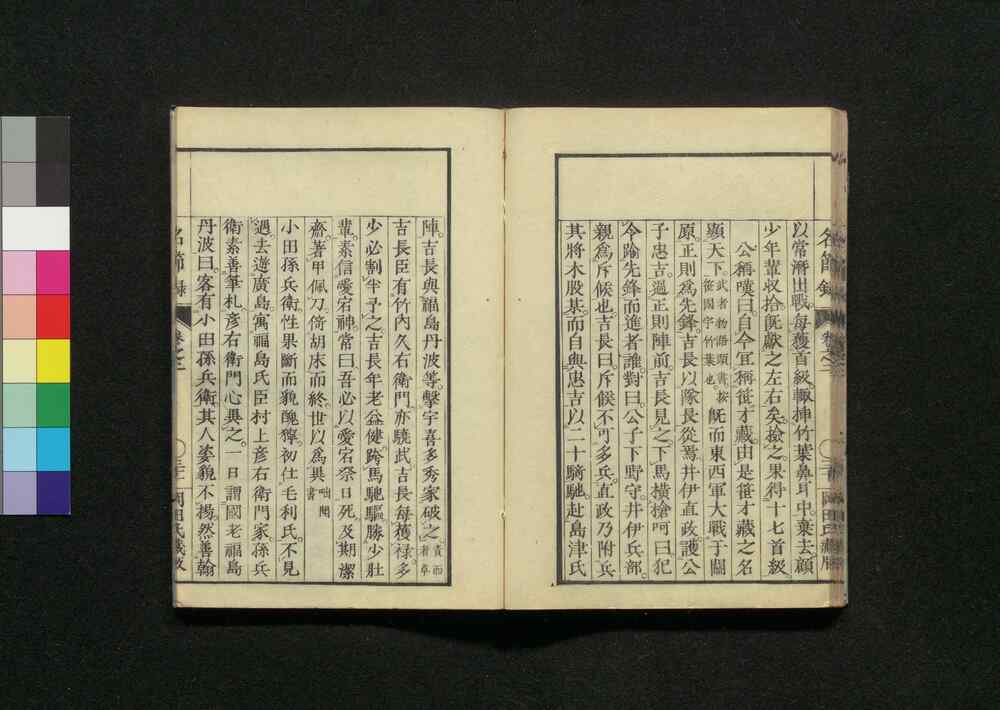 以常漸出戰。每獲首級。輙挿竹葉鼻耳中。棄去。顧
少年輩收拾。既獻之左右矣。撿之果得十七首級。
公稱嘆曰。自今宜稱笹才藏。由是笹才藏之名
顯天下。武者物語頭書。按笹國字竹葉也。既而東西軍大戰于關
原。正則爲先鋒。吉長以隊長從焉。井伊直政護公
子忠吉。過正則陣前。吉長見之。下馬橫槍呵曰。犯
令踰先鋒而進者誰。對曰。公子下野守。井伊兵部。
親爲斥候也。吉長曰。斥候不可多兵。直政乃附兵
其將木股某。而自與忠吉以二十騎馳赴島津氏
名節錄
卷之三
岡田氏藏版
陣。吉長與福島丹波等。擊宇喜多秀家破之。責而者草
吉長臣有竹內久右衛門。亦驍武。吉長每獲祿。多
少必割半予之。吉長年老益健。跨馬馳驅。勝少壯
輩。素信愛宕神。常曰。吾必以愛宕祭日死。及期潔
齋。著甲佩刀。倚胡床而終。世以爲異。咄聞書
小田孫兵衛。性果斷而貌醜獰。初仕毛利氏。不見
過去。遊廣島。寓福島氏臣村上彥右衛門家。孫兵
衛素善筆札。彥右衛門心異之。一日謂國老福島
丹波曰。客有小田孫兵衛。其人姿貌不揚。然善翰
名節錄
卷之三
岡田氏藏版